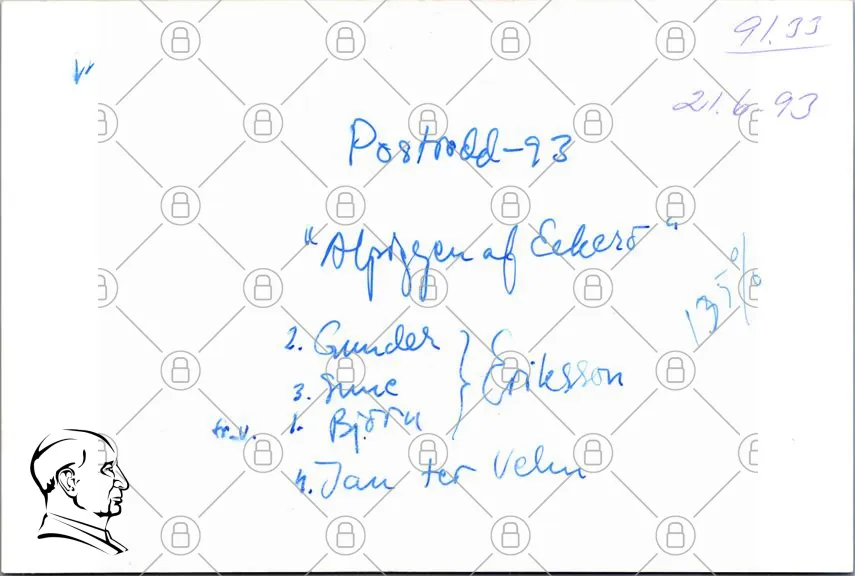 91.33
21.6-93
Postrodd-93
"Alpiggen af Eckerö"
135%
2. Gunder
3. Sune
fr.v. 1. Björn
Eriksson
4. Jan ter Vehn